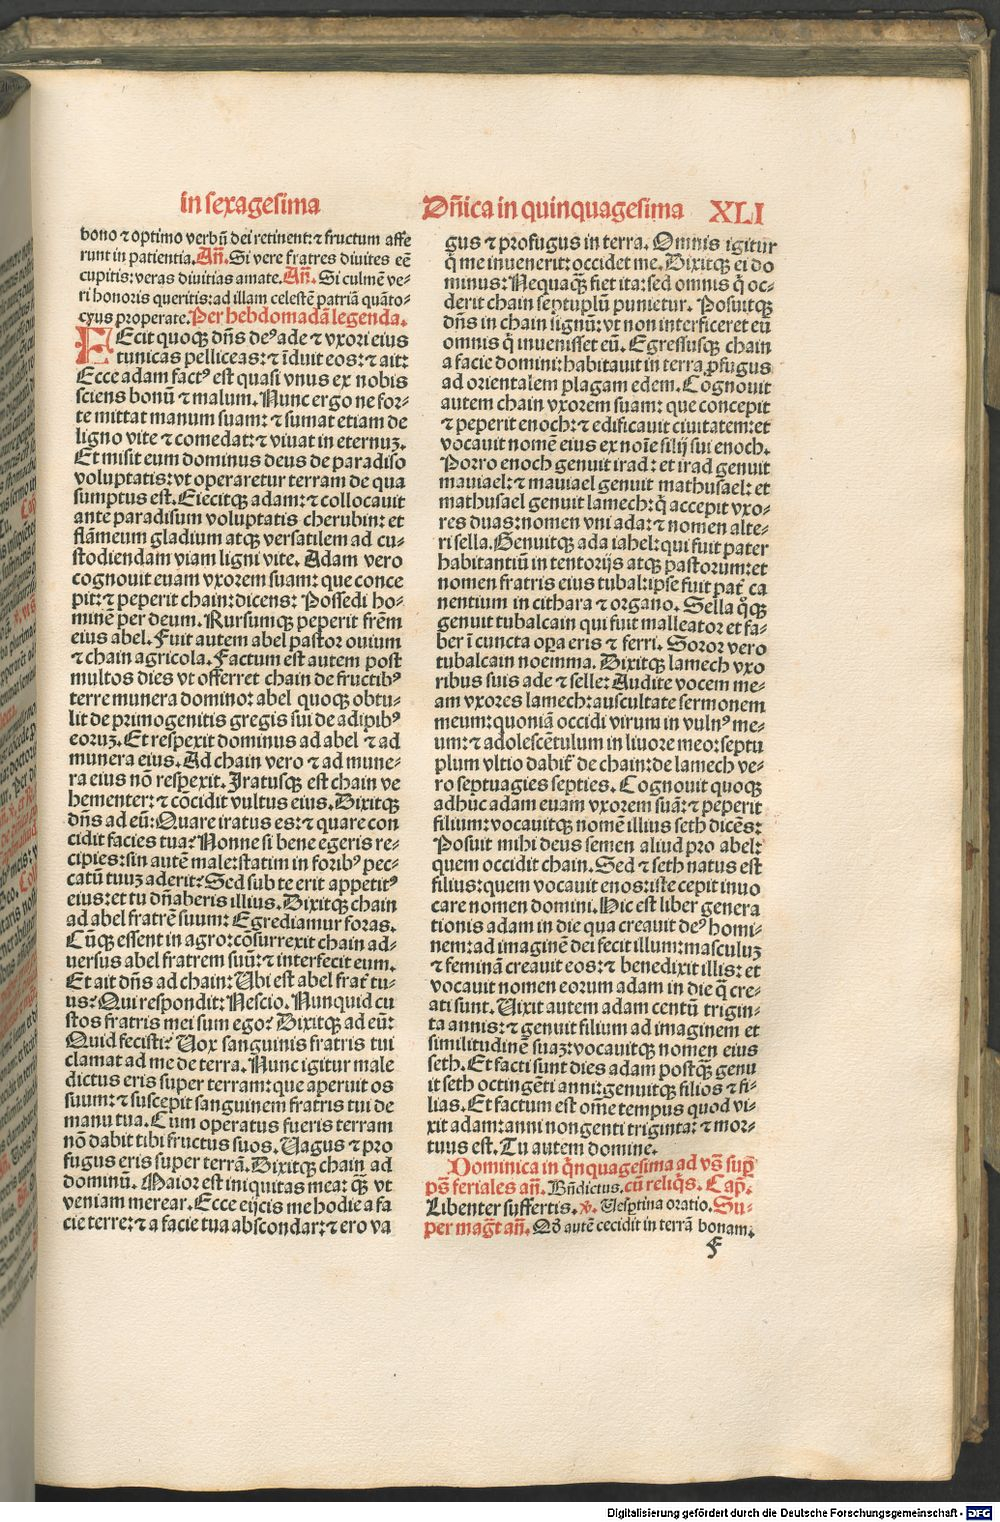 in sexagesima
Dñica in quinquagesima XLI
bono ⁊ optimo verbũ dei retinent:⁊ fructum affe
runt in patientia. Añ. Si vere fratres diuites eẽ
cupitis: veras diuitias amate. Añ. Si culmẽ ve⸗
ri honoris queritis: ad illam celestẽ patriã quãto⸗
cyus properate. Per hebdomadã legenda.
FEcit quoqꝫ dñs deꝰ ade ⁊ vxori eius
tunicas pelliceas: ⁊ ĩduit eos: ⁊ ait:
Ecce adam factꝰ est quasi vnus ex nobis
sciens bonũ ⁊ malum. Nunc ergo ne for⸗
te mittat manum suam: ⁊ sumat etiam de
ligno vite ⁊ comedat: ⁊ viuat in eternuꝫ.
Et misit eum dominus deus de paradiso
voluptatis: vt operaretur terram de qua
sumptus est. Eiecitqꝫ adam: ⁊ collocauit
ante paradisum voluptatis cherubin: et
flãmeum gladium atqꝫ versatilem ad cu⸗
stodiendam viam ligni vite. Adam vero
cognouit euam vxorem suam: que conce
pit: ⁊ peperit chain: dicens: Possedi ho⸗
minẽ per deum. Rursumqꝫ peperit frẽm
eius abel. Fuit autem abel pastor ouium
⁊ chain agricola. Factum est autem post
multos dies vt offerret chain de fructibꝰ
terre munera domino: abel quoqꝫ obtu⸗
lit de primogenitis gregis sui de adipibꝰ
eoruꝫ. Et respexit dominus ad abel ⁊ ad
munera eius. Ad chain vero ⁊ ad mune⸗
ra eius nõ respexit. Iratusqꝫ est chain ve
hementer: ⁊ cõcidit vultus eius. Dixitqꝫ
dñs ad eũ: Quare iratus es: ⁊ quare con
cidit facies tua? Nonne si bene egeris re⸗
cipies: sin autẽ male: statim in foribꝰ pec⸗
catũ tuuꝫ aderit? Sed sub te erit appetitꝰ
eius: et tu dñaberis illius. Dixitqꝫ chain
ad abel fratrẽ suum: Egrediamur foras.
Cũqꝫ essent in agro: cõsurrexit chain ad⸗
uersus abel fratrem suũ: ⁊ interfecit eum.
Et ait dñs ad chain: Ubi est abel frat̃ tu⸗
us? Qui respondit: Nescio. Nunquid cu
stos fratris mei sum ego? Dixitqꝫ ad eũ:
Quid fecisti? Uox sanguinis fratris tui
clamat ad me de terra. Nunc igitur male
dictus eris super terram: que aperuit os
suum: ⁊ suscepit sanguinem fratris tui de
manu tua. Cum operatus fueris terram
nõ dabit tibi fructus suos. Uagus ⁊ pro
fugus eris super terrã. Dixitqꝫ chain ad
dominũ. Maior est iniquitas mea: qꝫ̃ vt
veniam merear. Ecce eijcis me hodie a fa
cie terre: ⁊ a facie tua abscondar: ⁊ ero va
gus ⁊ profugus in terra. Omnis igitur
q̃ me inuenerit: occidet me. Dixitqꝫ ei do
minus: Nequaqꝫ̃ fiet ita: sed omnis q̃ oc⸗
derit chain septuplũ punietur. Posuitqꝫ
dñs in chain signũ: vt non interficeret eũ
omnis q̃ inuenisset eũ. Egressusqꝫ chain
a facie domini: habitauit in terra ꝓfugus
ad orientalem plagam edem. Cognouit
autem chain vxorem suam: que concepit
⁊ peperit enoch: ⁊ edificauit ciuitatem: et
vocauit nomẽ eius ex noĩe filij sui enoch.
Porro enoch genuit irad: et irad genuit
mauiael: ⁊ mauiael genuit mathusael: et
mathusael genuit lamech: q̃ accepit vxo⸗
res duas: nomen vni ada: ⁊ nomen alte⸗
ri sella. Genuitqꝫ ada iahel: qui fuit pater
habitantiũ in tentorijs atqꝫ pastorum: et
nomen fratris eius tubal: ipse fuit pat̃ ca
nentium in cithara ⁊ organo. Sella q̊qꝫ
genuit tubalcain qui fuit malleator et fa⸗
ber ĩ cuncta oꝑa eris ⁊ ferri. Soror vero
tubalcain noemma. Dixitqꝫ lamech vxo
ribus suis ade ⁊ selle: Audite vocem me⸗
am vxores lamech: auscultate sermonem
meum: quoniã occidi virum in vulnꝰ me⸗
um: ⁊ adolescẽtulum in liuore meo: septu
plum vltio dabit̃ de chain: de lamech ve⸗
ro septuagies septies. Cognouit quoqꝫ
adhuc adam euam vxorem suã: ⁊ peperit
filium: vocauitqꝫ nomẽ illius seth dicẽs:
Posuit mihi deus semen aliud pro abel:
quem occidit chain. Sed ⁊ seth natus est
filius: quem vocauit enos: iste cepit inuo
care nomen domini. Hic est liber genera
tionis adam in die qua creauit deꝰ homi⸗
nem: ad imaginẽ dei fecit illum: masculuꝫ
⁊ feminã creauit eos: ⁊ benedixit illis: et
vocauit nomen eorum adam in die q̃ cre⸗
ati sunt. Uixit autem adam centũ trigin⸗
ta annis: ⁊ genuit filium ad imaginem et
similitudinẽ suaꝫ: vocauitqꝫ nomen eius
seth. Et facti sunt dies adam postqꝫ̃ genu
it seth octingẽti anni: genuitqꝫ filios ⁊ fi⸗
lias. Et factum est oẽm tempus quod vi⸗
xit adam: anni nongenti triginta: ⁊ mor⸗
tuus est. Tu autem domine.
Dominica in q̃nquagesima ad vš̃ suꝑ
pš̃ feriales añ. Bñdictus. cũ reliq̃s. Cap̃.
Libenter suffertis. ℣. Uesꝑtina oratio. Su⸗
per mag̃t añ. Qd̃ autẽ cecidit in terrã bonam.
F
Digitalisierung gefördert durch die Deutsche Forschungsgemeinschaft - DFG